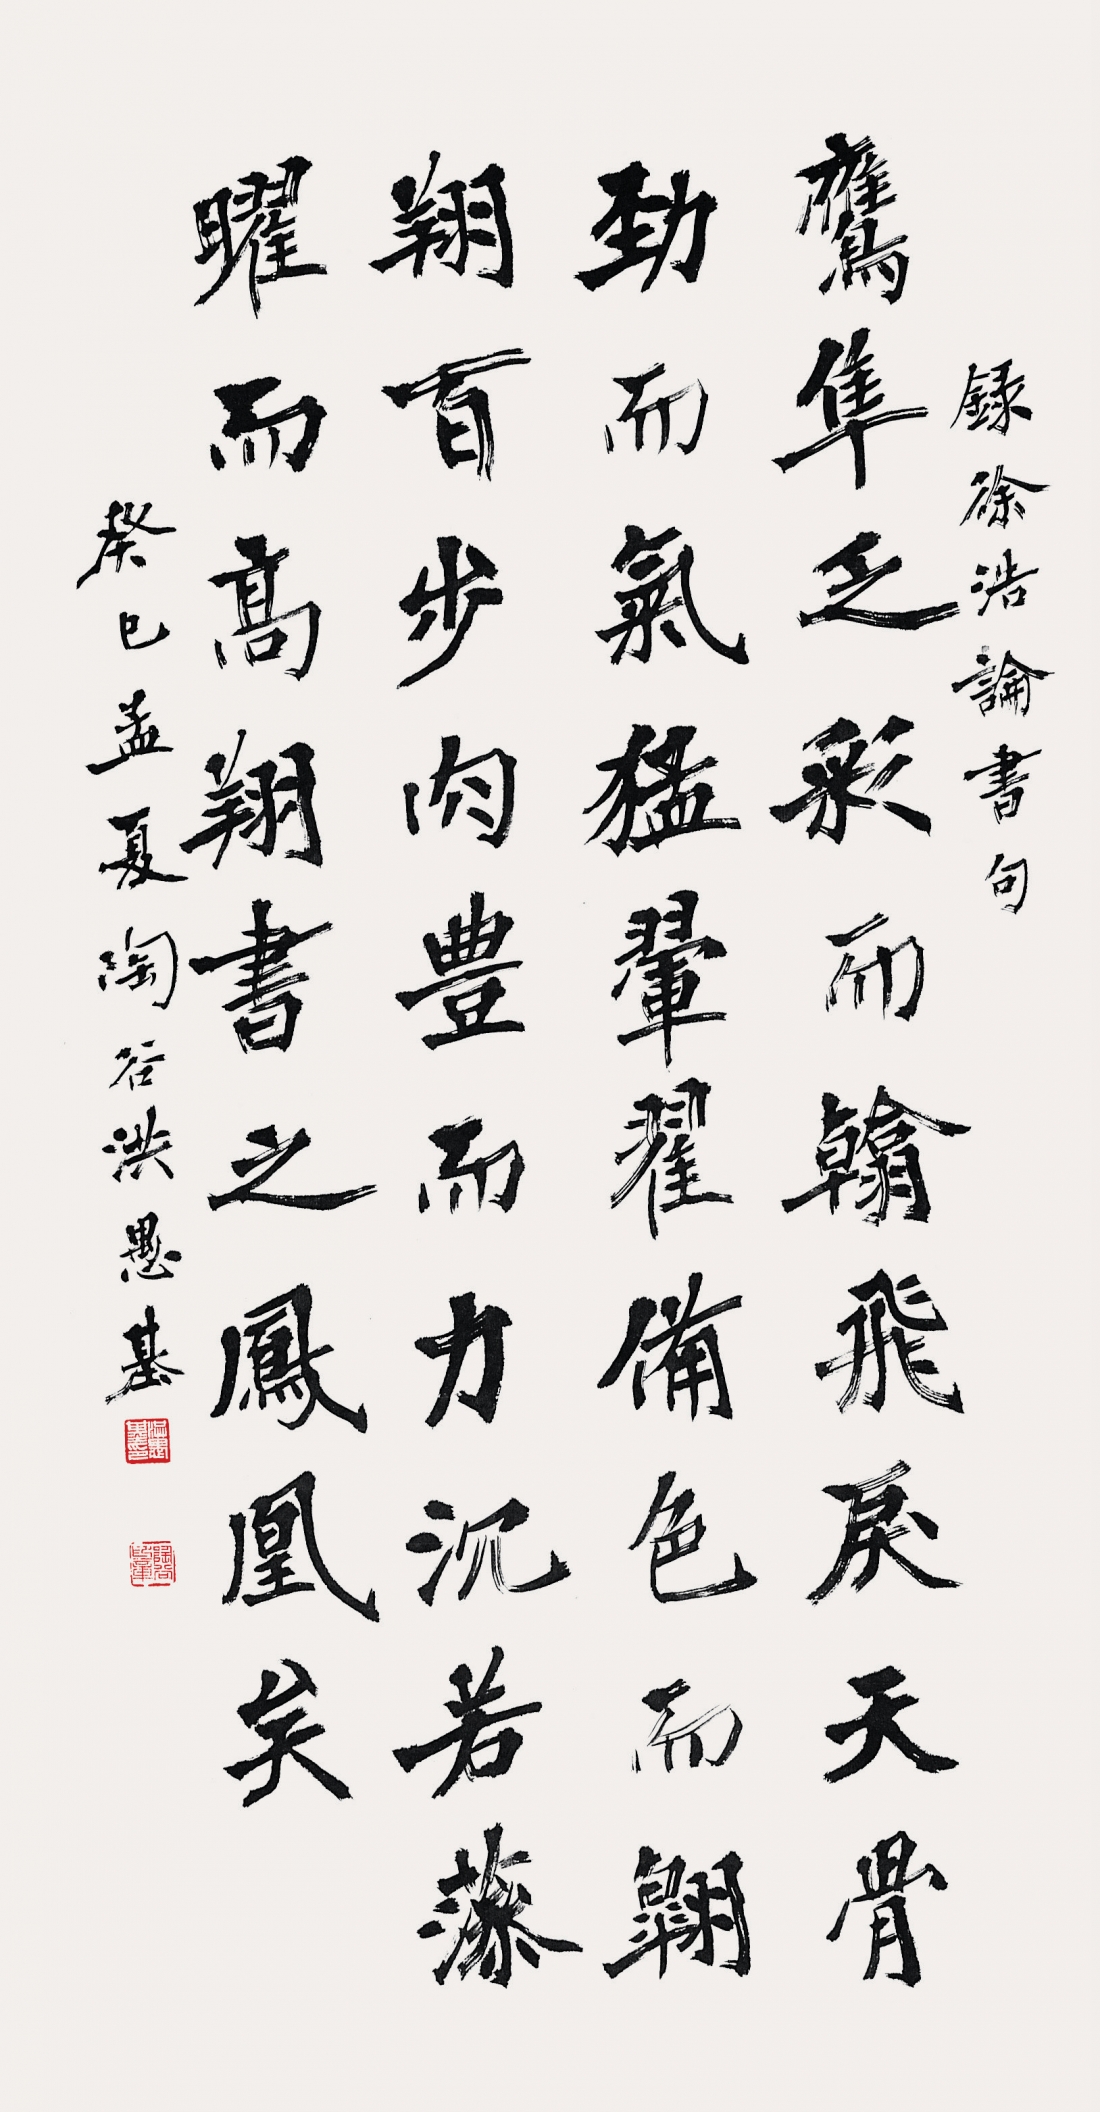 錄徐浩論書句
鷹隼乏彩而翰飛戾天骨
勁而氣猛翬翟備色而翱
翔百步肉豊而力沉若藻
曜而高翔書之鳳凰矣
癸巳孟夏陶谷洪愚基